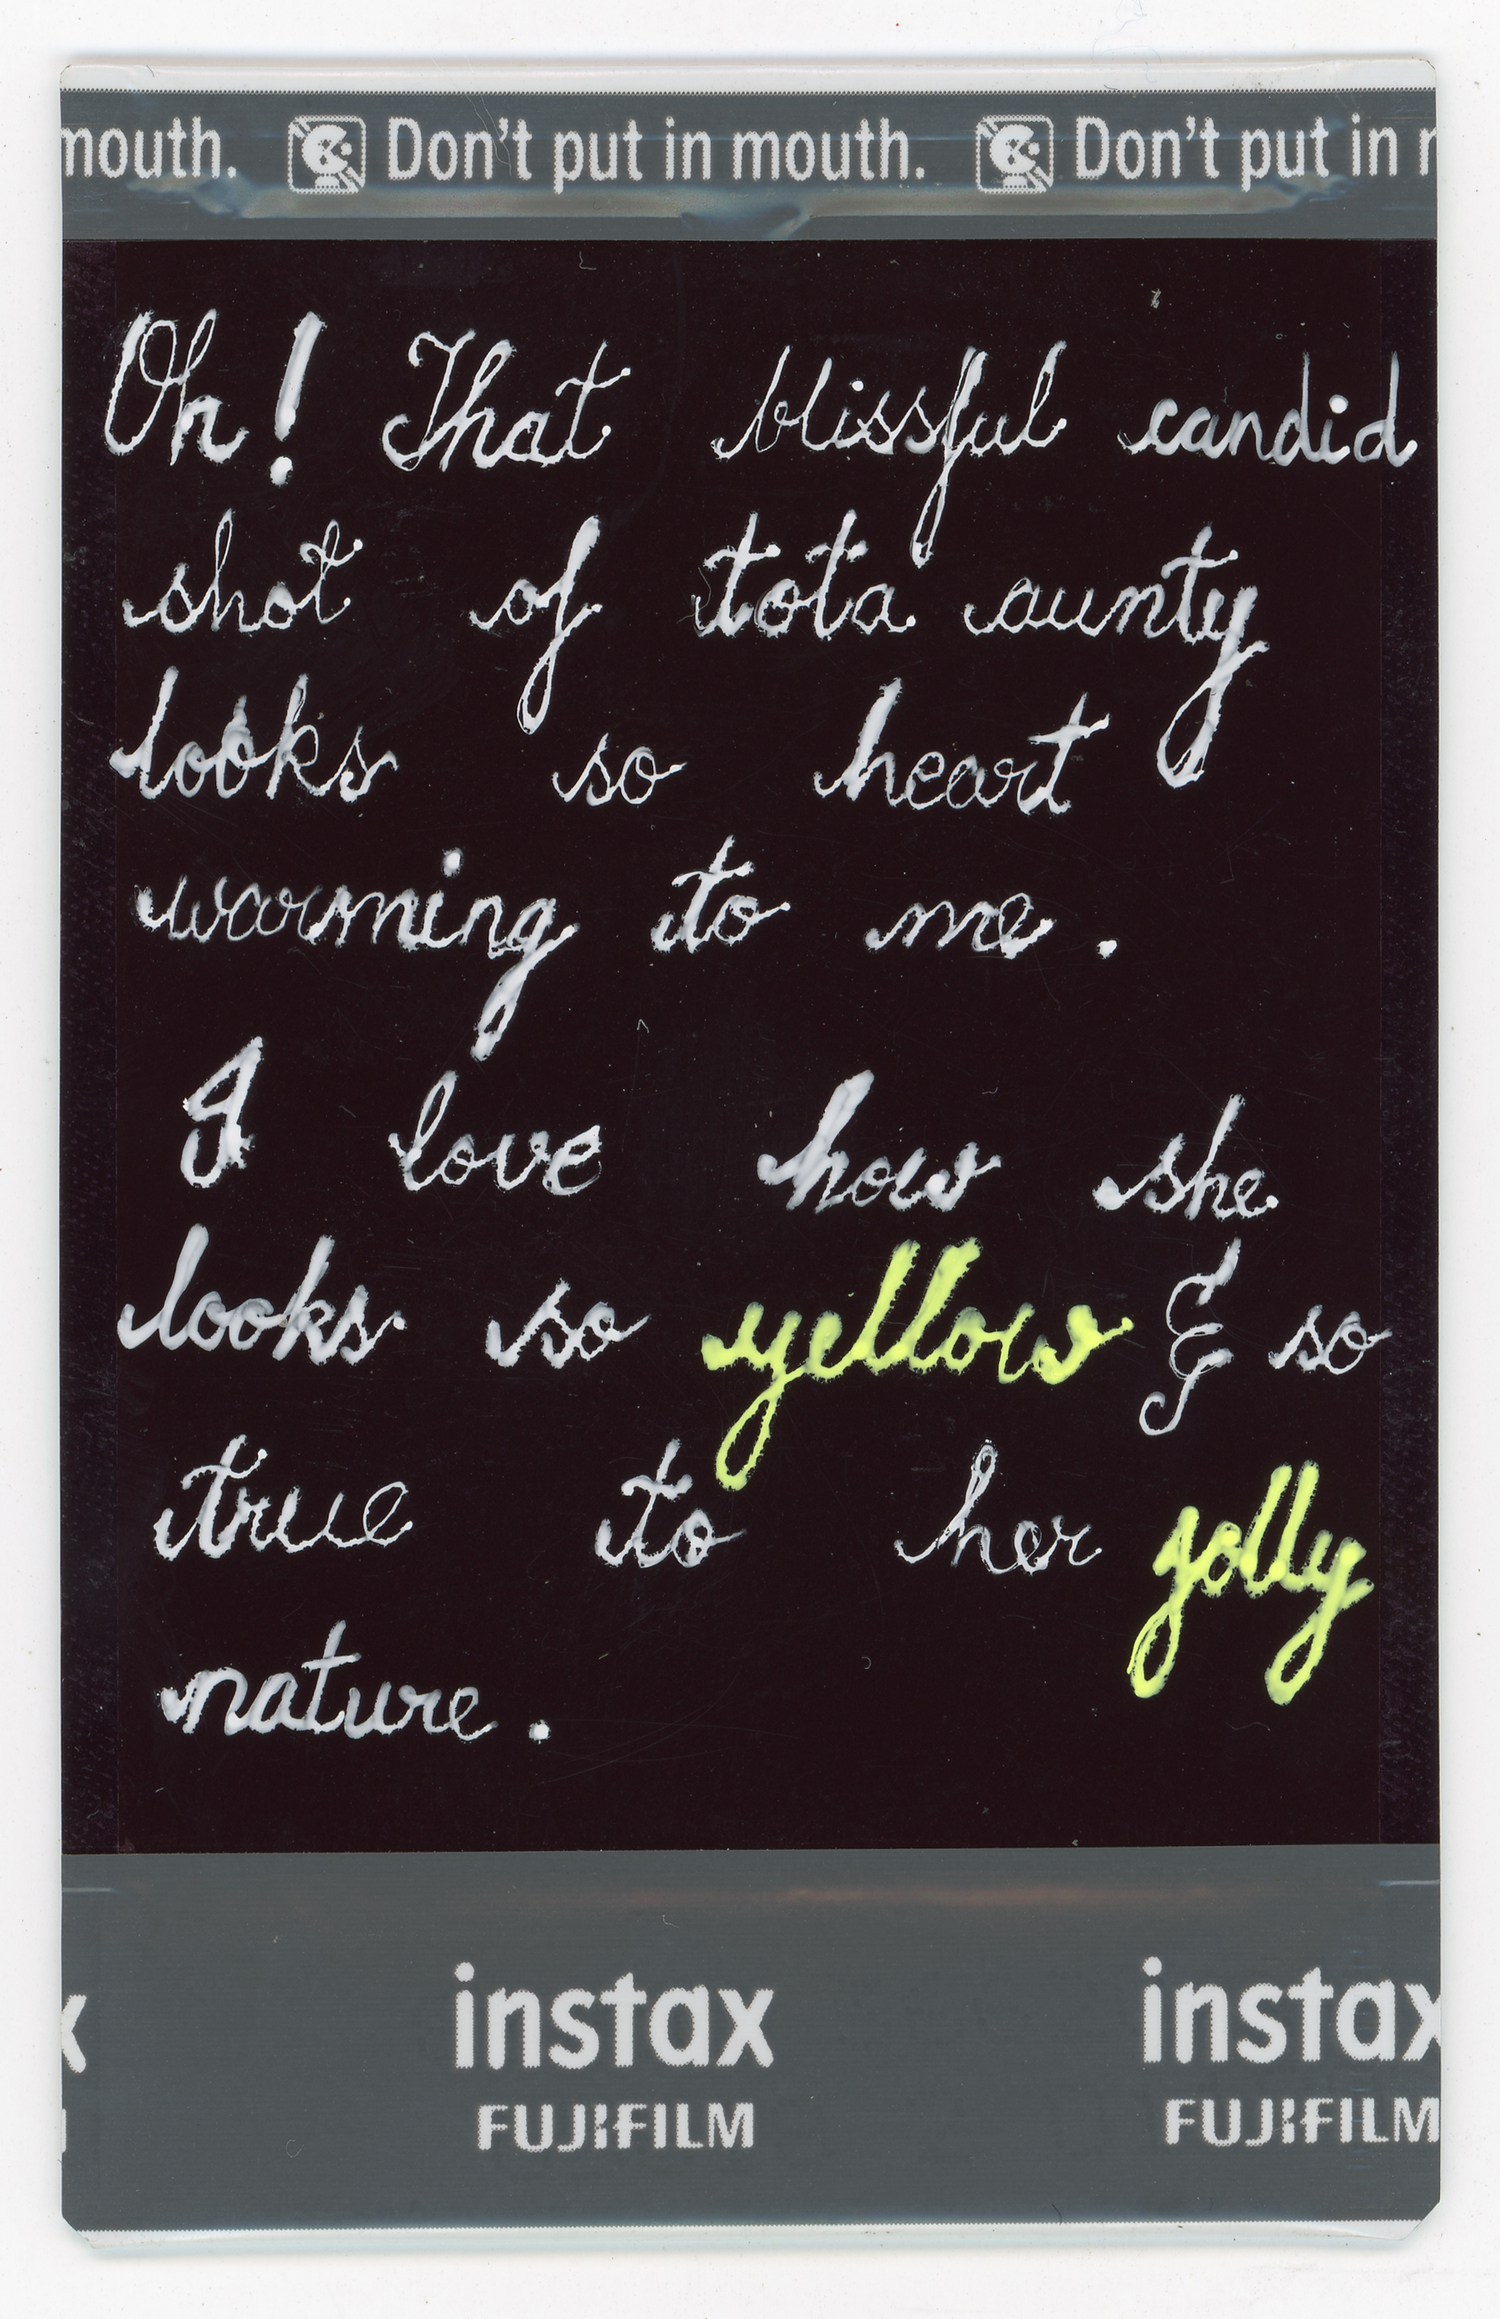 mouth. Don't put in mouth. Don't put in
Oh! That blissful candid
shot of tota aunty
looks so heart
warming to me.
I love how she
looks so yellow & so
true to her jolly
nature.
instax instax
FUJIFILM FUJIFILM